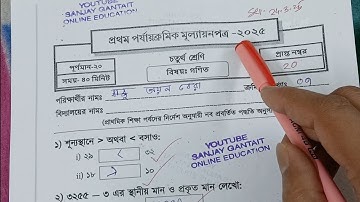 YOUTUBE
SANJAY GANTAIT
ONLINE EDUCATION
প্রথম পর্যায়ক্রমিক মূল্যায়নপত্র -২০২৫
পূর্ণমান-২০
সময়- ৪০ মিনিট
চতুর্থ শ্রেণি
বিষয়: গণিত
প্রাপ্ত নম্বর
20
পরীক্ষার্থীর নামঃ
বিদ্যালয়ের নামঃ
(প্রাথমিক শিক্ষা পর্ষদের নির্দেশ অনুযায়ী নব প্রবর্তিত পদ্ধতি
YOUTUBE
SANJAY GANTAIT
ONLINE EDUCATION
১) শূন্যস্থানে > অথবা < বসাও:
i) ২৯ < ৩২
ii) ১৮ > ১০
২) ৩২৫৫ – ৩ এর স্থানীয় মান ও প্রকৃত মান লেখো: